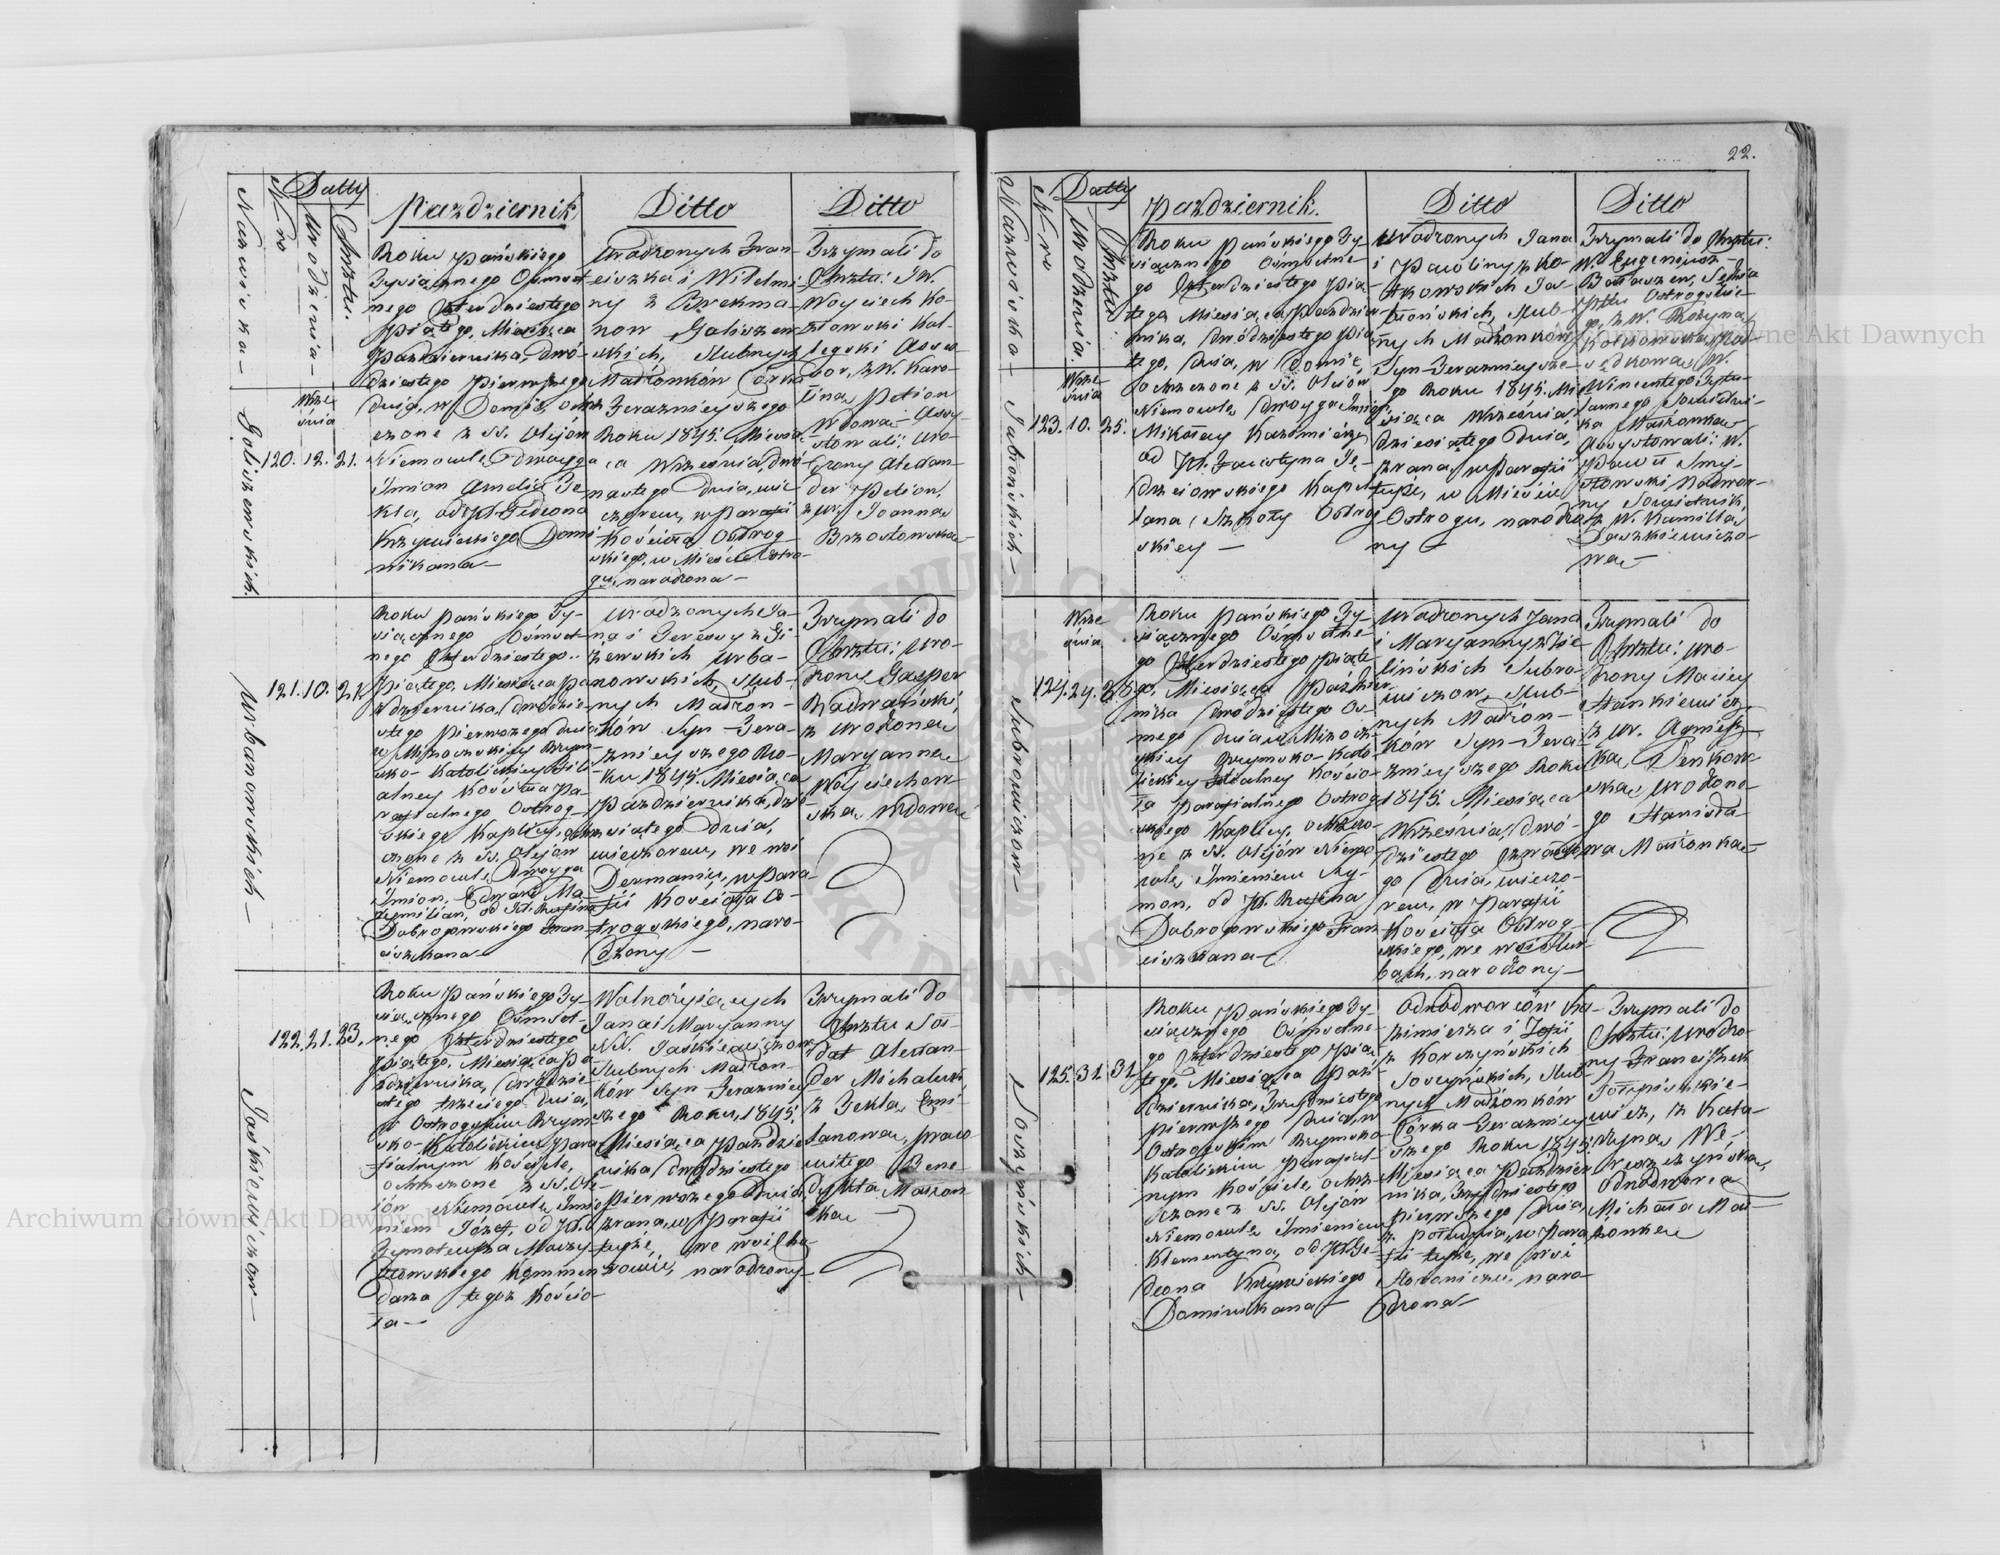 22.
Nazwiska
Nro
Datty
Urodzenia
Chrztu.
Październik
Ditto
Ditto
Golis​zewskich.
Wrze
śnia
120. 12. 21.
Roku Pańskiego
Tysiącznego Ośmset-
nego Czterdziestego
Piątego, Miesiąca
Października, dwó-
dziestego Pierwszego
dnia, w Domie, och-
czone z SS. Olejów
Niemowle dwoyga
Imion Amelia Te-
kla, od JX. Gedeona
Krzywickiego Domi-
nikana —
Urodzonych Fran-
ciszka i Wilelmi-
ny z Brekma-
now Goliszew-
skich, Slubnych
Małżonków Córka
Terazniejszego
Roku 1845. Miesią-
ca Września, dwó-
nastego Dnia, wie-
czorem, w Parafii
Kościoła Ostrog-
skiego, w Mieście Ostro-
gu, narodzona —
Trzymali do
Chrztu: JW.
Woyciech Ko-
złowski Kol-
legski Asses-
sor, z W. Karo-
liną Petion
Wdową. Assy-
stowali: Uro-
dzony Alexan-
der Petion,
z Ur. Joanną
Brzostowską
Urbanowskich —
121. 10. 21.
Roku Pańskiego Ty-
siącznego Ośmset-
nego Czterdziestego
Piątego, Miesiąca Pa-
zdziernika, dwudzie-
stego Pierwszego dnia
w Mizoczskiey Rzym-
sko-Katolickiey Fili-
alney Kościoła Pa-
rafialnego Ostrog-
skiego Kaplicy, och-
czone z SS. Olejów
Niemowle dwoyga
Imion, Edward Ma-
xymilian, od JX. Rufina
Dobrogowskiego Fran-
ciszkana —
Urodzonych Ja-
na i Teressy z Gi-
żewskich Urba-
nowskich, Slub-
nych Małżon-
ków Syn Tera-
zniejszego Ro-
ku 1845. Miesiąca
Października, dzie-
siątego Dnia,
wieczorem, we wsi
Dermaniu, w Para-
fii Kościoła O-
strogskiego, naro-
dzony —
Trzymali do
Chrztu: Uro-
dzony Gasper
Radwański,
z Urodzoną
Maryanną
Woyciechow-
ską, Wdową
Jaśkiewiczow —
122. 21. 23.
Roku Pańskiego Ty-
siącznego Ośmset-
nego Czterdziestego
Piątego, Miesiąca Pa-
zdziernika, dwudzie-
stego trzeciego dnia,
w Ostrogskim Rzym-
sko-Katolickim Para-
fialnym Kościele,
ochrzczone z SS. Ole-
jów Niemowle, Imie-
niem Józef, od JX.
Tymoteusza
Kommen-
darza tegoż Kościo-
ła —
Wolnożyjących
Jana i Maryanny
NN. Jaśkiewiczow
Slubnych Małżon-
ków Syn Terazniey-
szego Roku, 1845.
Miesiąca Paździer-
nika, dwudziestego
Pierwszego Dnia,
zrana, w Parafii
teyże, we wsi
narodzony —
Trzymali do
Chrztu Sol-
dat Alexan-
der Michalski,
z Teklą
praco-
witego Bene-
dykta Małżon-
ką
Nazwiska
Nro
Datty
Urodzenia.
Chrztu.
Październik.
Ditto
Ditto
Jabłońskich —
Wrze
śnia
123. 10. 25.
Roku Pańskiego Ty-
siącznego Ośmsetne-
go Czterdziestego Pią-
tego, Miesiąca Paździer-
nika, dwódziestego Pią-
tego, Dnia, w Domie,
ochrzczone z SS. Olejów
Niemowle, dwoyga Imion
Mikołay Kazimierz
od JX. Faustyna Ję-
drzejowskiego Kape-
lana Szkoły Ostrog-
skiey —
Urodzonych Jana
i Pauliny z Ko-
tkowskich Ja-
błońskich, Slub-
nych Małżonków
Syn Terazniejsze-
go Roku 1845. Mie-
siąca Września
dziesiątego Dnia,
zrana, w Parafii
teyże, w Mieście
Ostrogu, narodzo-
ny —
Trzymali do Chrztu:
W. Eugeniusz
Sędzia
Ptu Ostrogskie-
go, z W. Rozyną
W.
Wincentego Tytu-
larnego Sowietni-
ka Małżonką
Assystowali: W.
Paweł Smy-
słowski Nadwor-
ny Sowietnik,
z W. Kamillą
Daszkiewiczo-
wą —
Subrowiczow —
Wrze
śnia
124. 24. 28.
Roku Pańskiego Ty-
siącznego Ośmsetne-
go Czterdziestego Piąte-
go, Miesiąca Paździer-
nika dwódziestego Os-
mego dnia, w Mizocz-
skiey Rzymsko-Kato-
lickiey Filialney Kościo-
ła Parafialnego Ostrog-
skiego Kaplicy, ochrzczo-
ne z SS. Olejów Niemo-
wle, Imieniem Szy-
mon, od JX. Rufina
Dobrogowskiego Fran-
ciszkana —
Urodzonych Jana
i Maryanny z Zie-
lińskich Subro-
wiczow, Slub-
nych Małżon-
ków Syn Tera-
zniejszego Roku
1845. Miesiąca
Września, dwó-
dziestego Czwarte-
go Dnia, wieczo-
rem, w Parafii
Kościoła Ostrog-
skiego, we wsi
narodzony —
Trzymali do
Chrztu: Uro-
dzony Maciey
Stankiewicz,
z Ur. Agniesz-
ką
ską Urodzone-
go Stanisła-
wa Małżonką
125. 31. 31.
Roku Pańskiego Ty-
siącznego Ośmsetne-
go Czterdziestego Pią-
tego, Miesiąca Paź-
dziernika, Trzydziestego
Pierwszego Dnia, w
Ostrogskim Rzymsko-
Katolickim Parafial-
nym Kościele, ochrz-
czone z SS. Olejów
Niemowle, Imieniem
Klementyna, od JX. Ge-
deona Krzywickiego
Dominikana —
Odnodworców Ka-
zimierza i Zofii
z Korczyńskich
Slub-
nych Małżonków
Córka Terazniey-
szego Roku 1845.
Miesiąca Paździer-
nika, Trzydziestego
Pierwszego Dnia,
z południa, w Para-
fii teyże, we wsi
naro-
dzona —
Trzymali do
Chrztu: Urodzo-
ny Franciszek
wicz, z Kata-
rzyną
Odnodworca
Michała Mał-
żonką
Archiwum Główne Akt Dawnych
Archiwum Główne Akt Dawnych